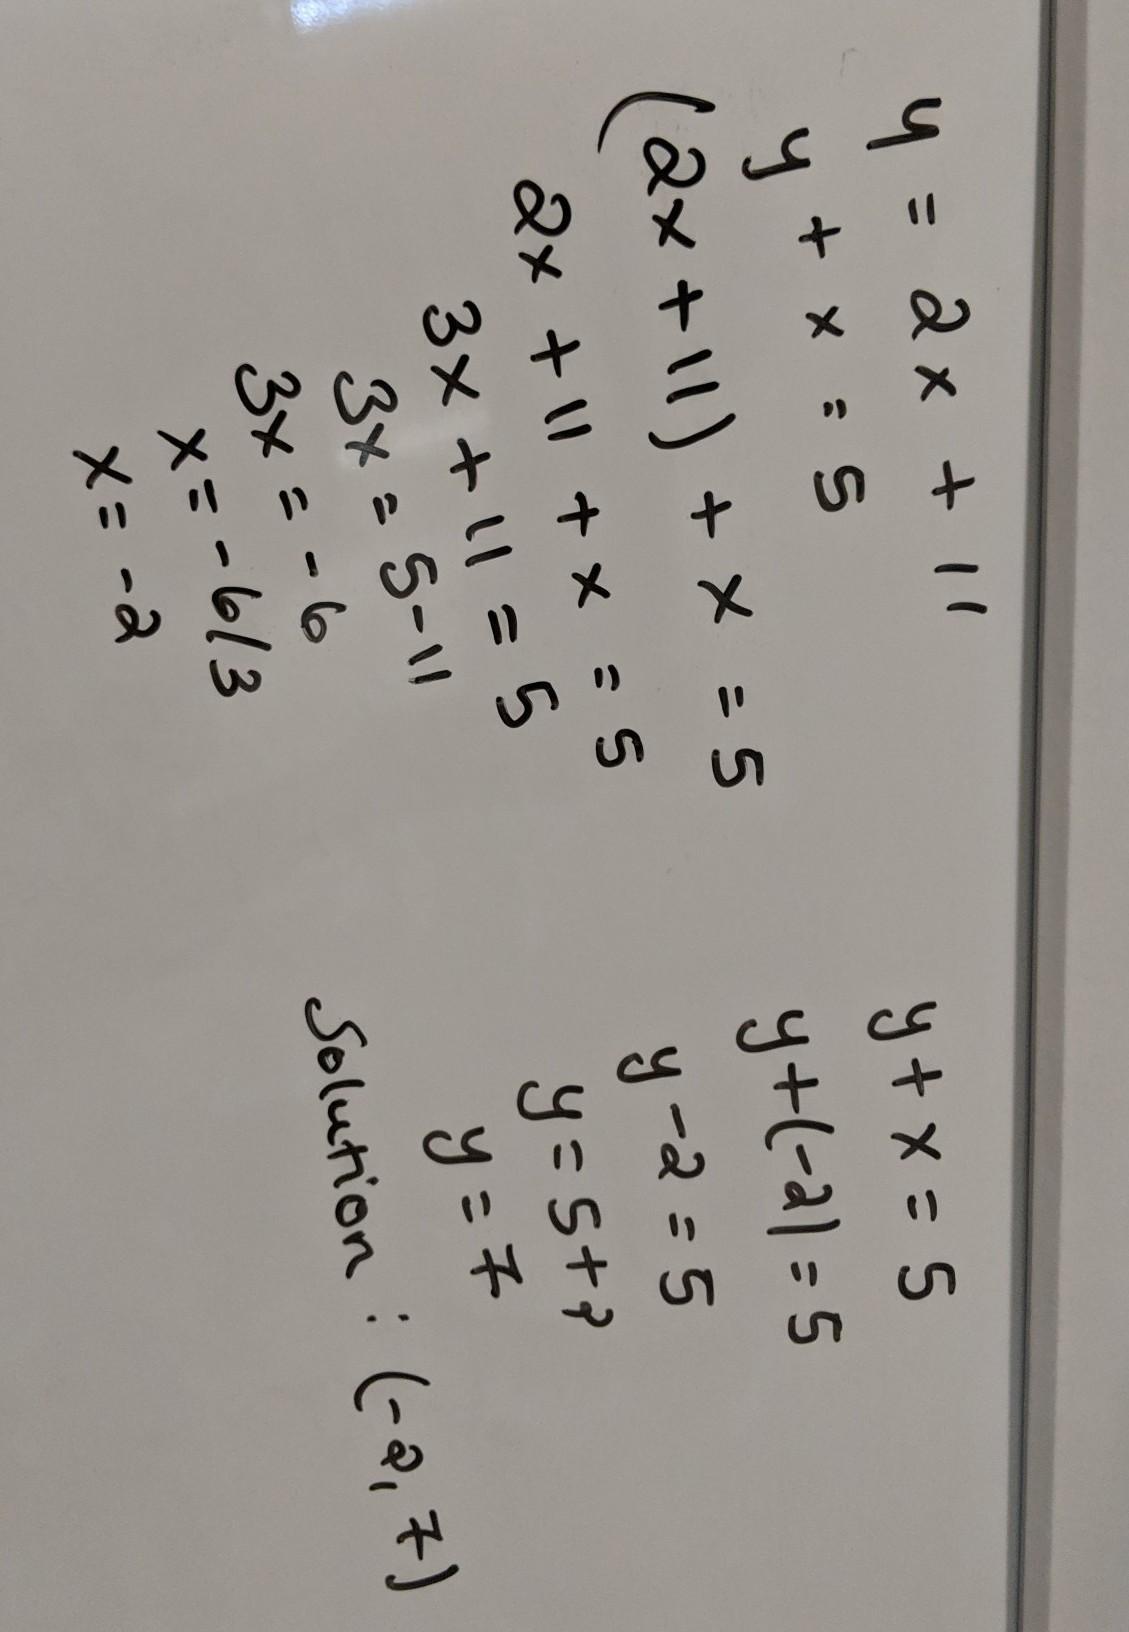 y = 2x + 11
y + x = 5
(2x + 11) + x = 5
2x + 11 + x = 5
3x + 11 = 5
3x = 5-11
3x = -6
x = -6/3
x = -2
y + x = 5
y + (-2) = 5
y -2 = 5
y = 5+2
y = 7
Solution : (-2, 7)